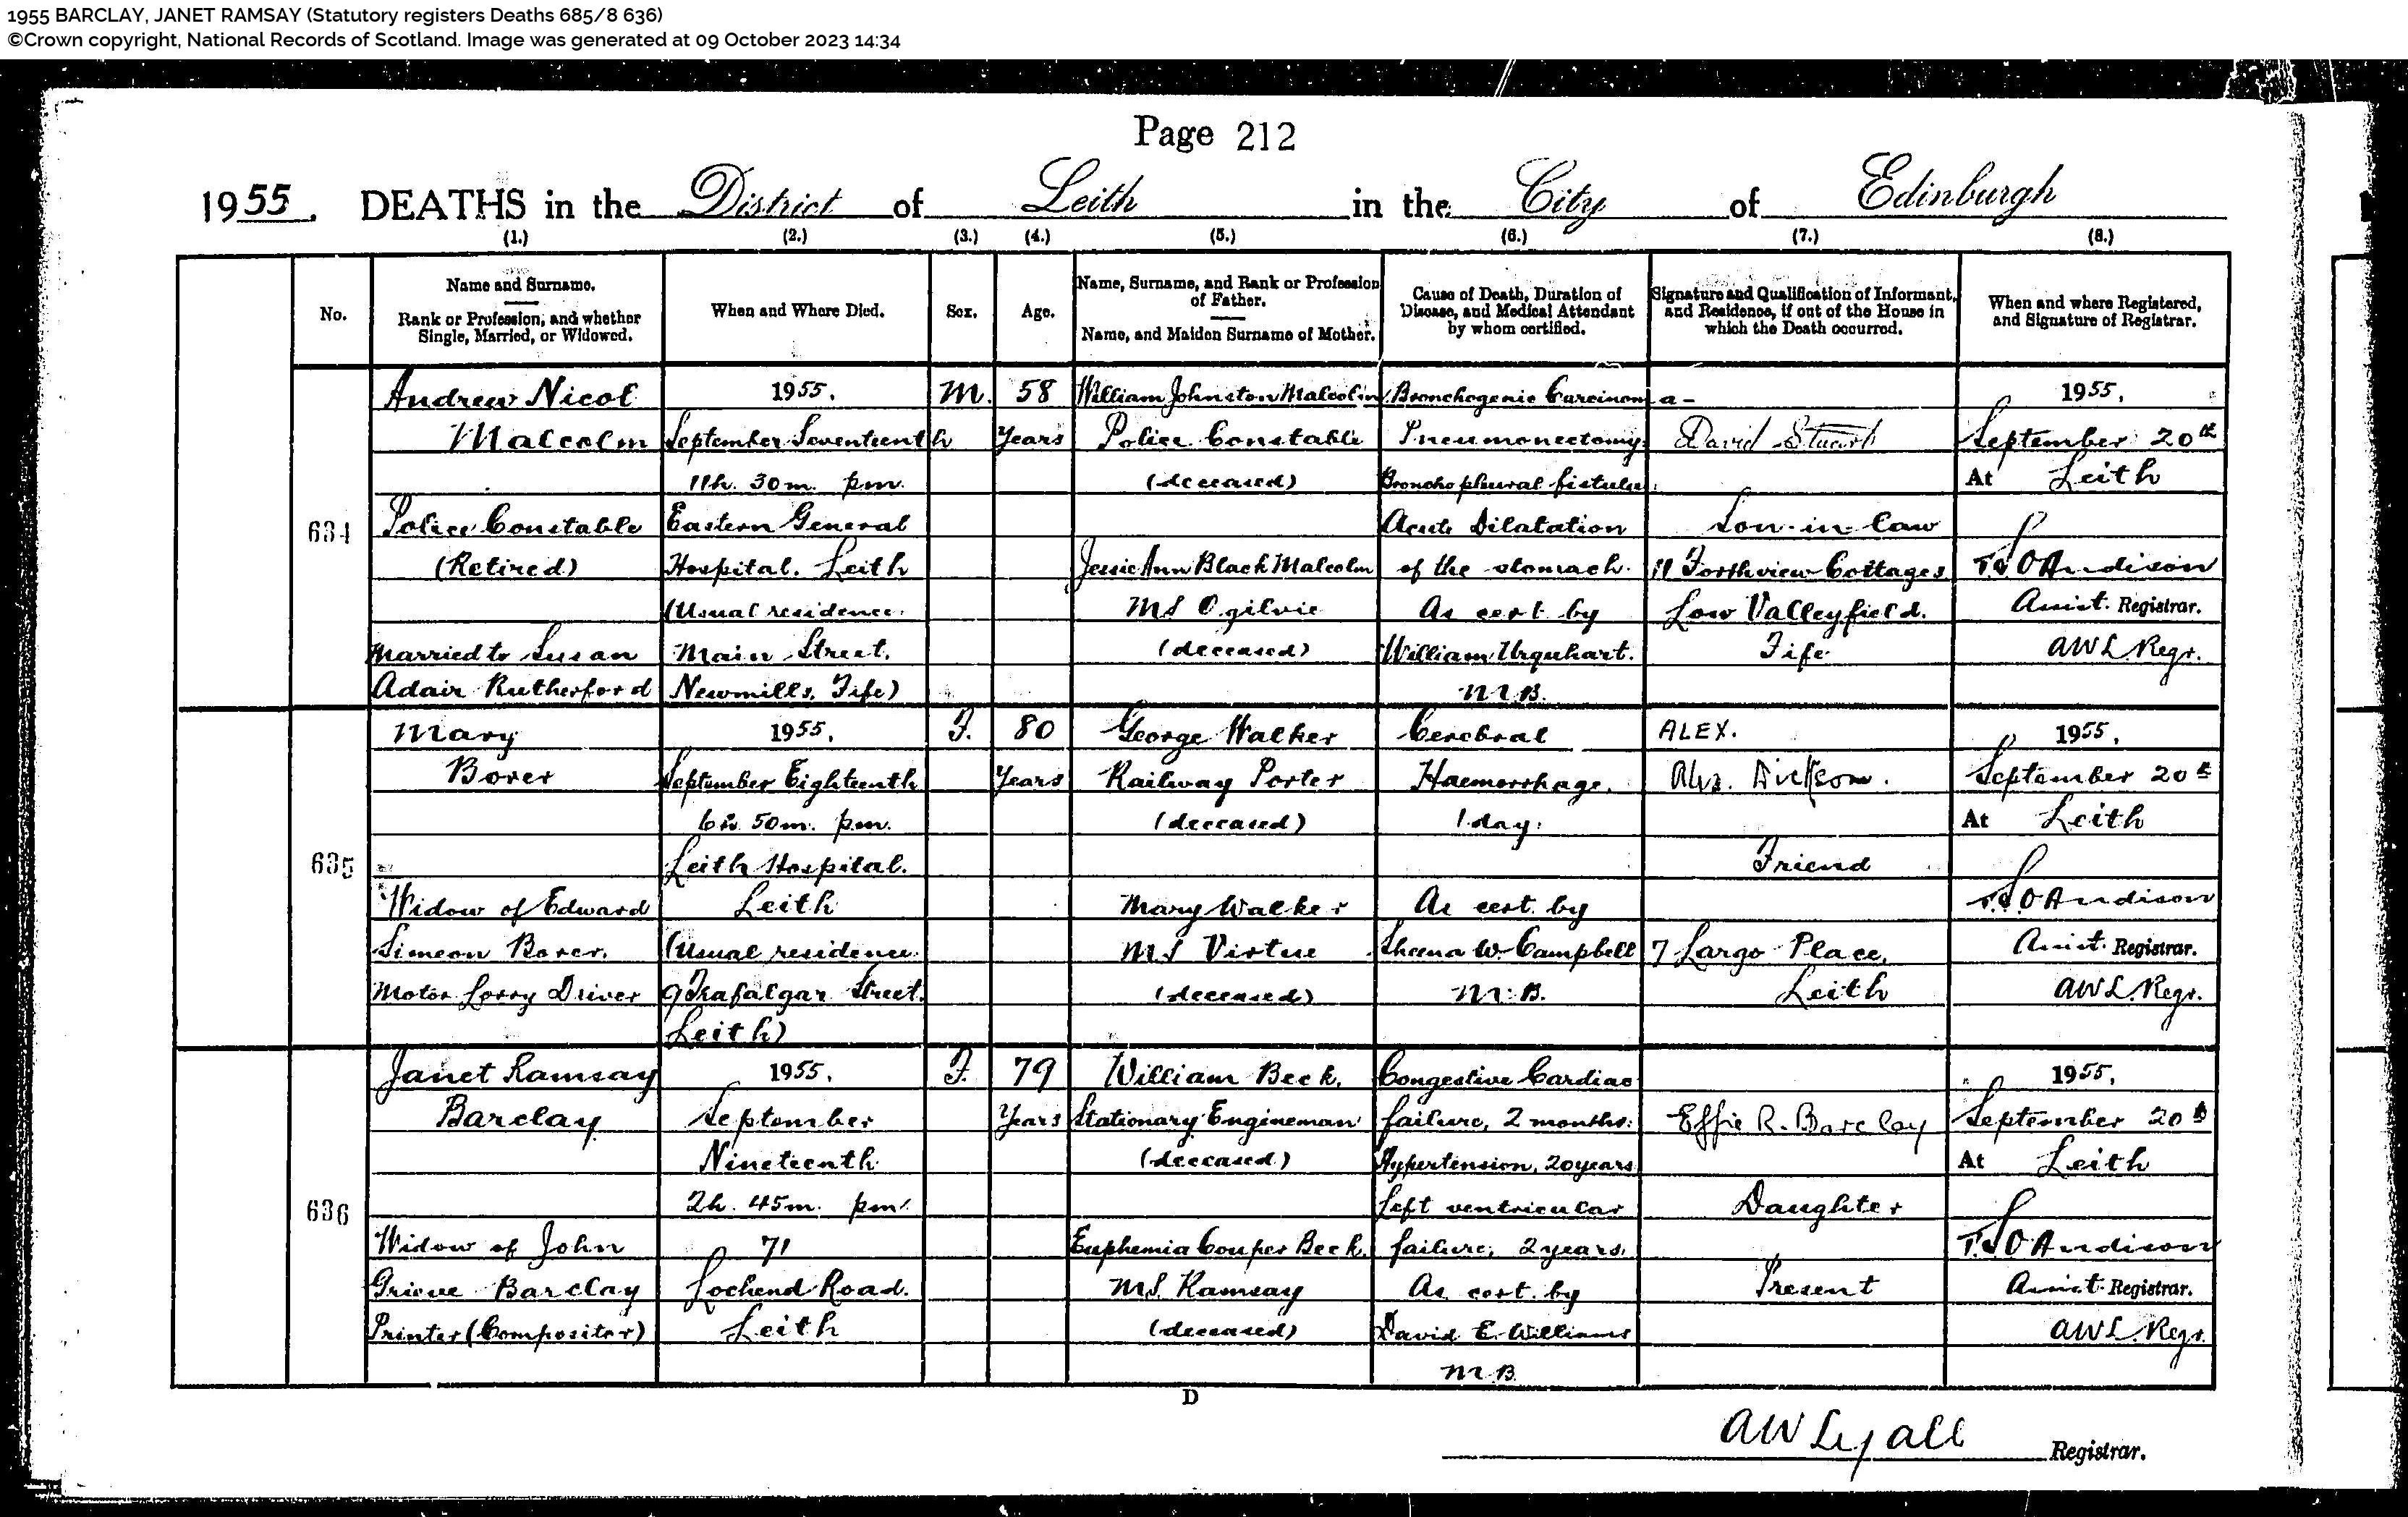 1955 BARCLAY, JANET RAMSAY (Statutory registers Deaths 685/8 636)
©Crown copyright, National Records of Scotland. Image was generated at 09 October 2023 14:34
Page 212
1955. DEATHS in the District of Leith in the City of Edinburgh
(1.) (2.) (3.) (4.) (5.) (6.) (7.) (8.)
No.
Name and Surname.
Rank or Profession, and whether
Single, Married, or Widowed.
When and Where Died.
Sex.
Age.
Name, Surname, and Rank or Profession
of Father.
Name, and Maiden Surname of Mother.
Cause of Death, Duration of
Disease, and Medical Attendant
by whom certified.
Signature and Qualification of Informant,
and Residence, if out of the House in
which the Death occurred.
When and where Registered,
and Signature of Registrar.
634
Andrew Nicol
Malcolm
Police Constable
(Retired)
Married to Susan
Adair Rutherford
1955.
September Seventeenth
11h. 30m. pm.
Eastern General
Hospital. Leith
(Usual residence
Main Street.
Newmills, Fife)
M.
58
Years
William Johnston Malcolm
Police Constable
(deceased)
Jessie Ann Black Malcolm
MS Ogilvie
(deceased)
Bronchogenic Carcinoma -
Pneumonectomy:
Bronchopleural fistula:
Acute Dilatation
of the stomach.
As cert by
William Urquhart.
M.B.
David Stuart
Son-in-law
11 Forthview Cottages
Low Valleyfield.
Fife
1955.
September 20th
At Leith
T.S.O Andison
Assist. Registrar.
AWL. Regr.
635
Mary
Borer
Widow of Edward
Simeon Borer.
Motor Lorry Driver
1955.
September Eighteenth
6h. 50m. pm.
Leith Hospital.
Leith
(Usual residence
9 Trafalgar Street.
Leith)
F.
80
Years
George Walker
Railway Porter
(deceased)
Mary Walker
MS Virtue
(deceased)
Cerebral
Haemorrhage.
1 day.
As cert. by
Sheena W. Campbell
M.B.
ALEX.
Alex. Dickson.
Friend
7 Largo Place,
Leith
1955.
September 20th
At Leith
T.S.O Andison
Assist. Registrar.
AWL. Regr.
636
Janet Ramsay
Barclay
Widow of John
Grieve Barclay
Printer (Compositor)
1955.
September
Nineteenth
2h. 45m. pm.
71
Lochend Road.
Leith
F.
79
Years
William Beck,
Stationary Engineman
(deceased)
Euphemia Couper Beck.
MS. Ramsay
(deceased)
Congestive Cardiac
failure, 2 months:
Hypertension, 20 years
Left ventricular
failure, 2 years.
As cert. by
David E. Williams
M.B.
Effie R. Barclay
Daughter
Present
1955.
September 20th
At Leith
T.S.O Andison
Assist. Registrar.
AWL. Regr.
D
AW Lyall Registrar.